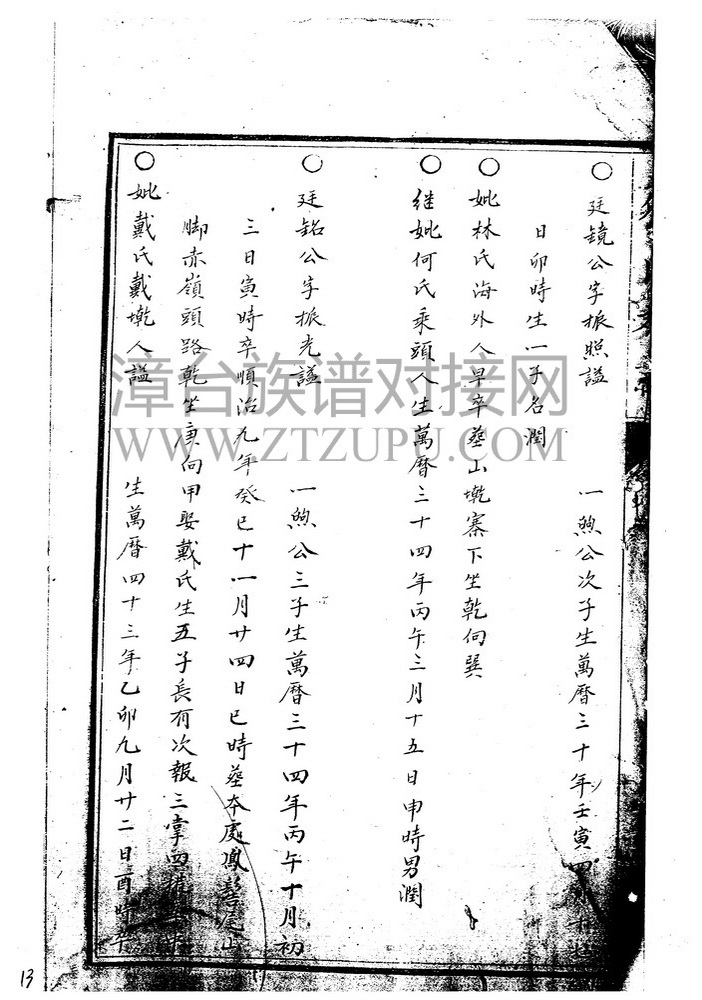 ○廷鏡公字振照謚 一煦公次子生萬曆三十年壬寅四
日卯時生一子名潤
○妣林氏海外人早卒葬山墘寨下坐乾向巽
○继妣何氏乘頭人生萬曆三十四年丙午三月十五日申時男潤
○廷銘公字振光謚 一煦公三子生萬曆三十四年丙午十月初
三日寅時卒順治九年癸巳十一月廿四日巳時葬本處鳳髻尾山
脚赤嶺頭路乾坐庚向甲娶戴氏生五子長有次報三掌四
○妣戴氏戴墘人謚 生萬曆四十三年乙卯九月廿二日酉時卒
漳台族谱对接网
WWW.ZTZUPU.COM
13